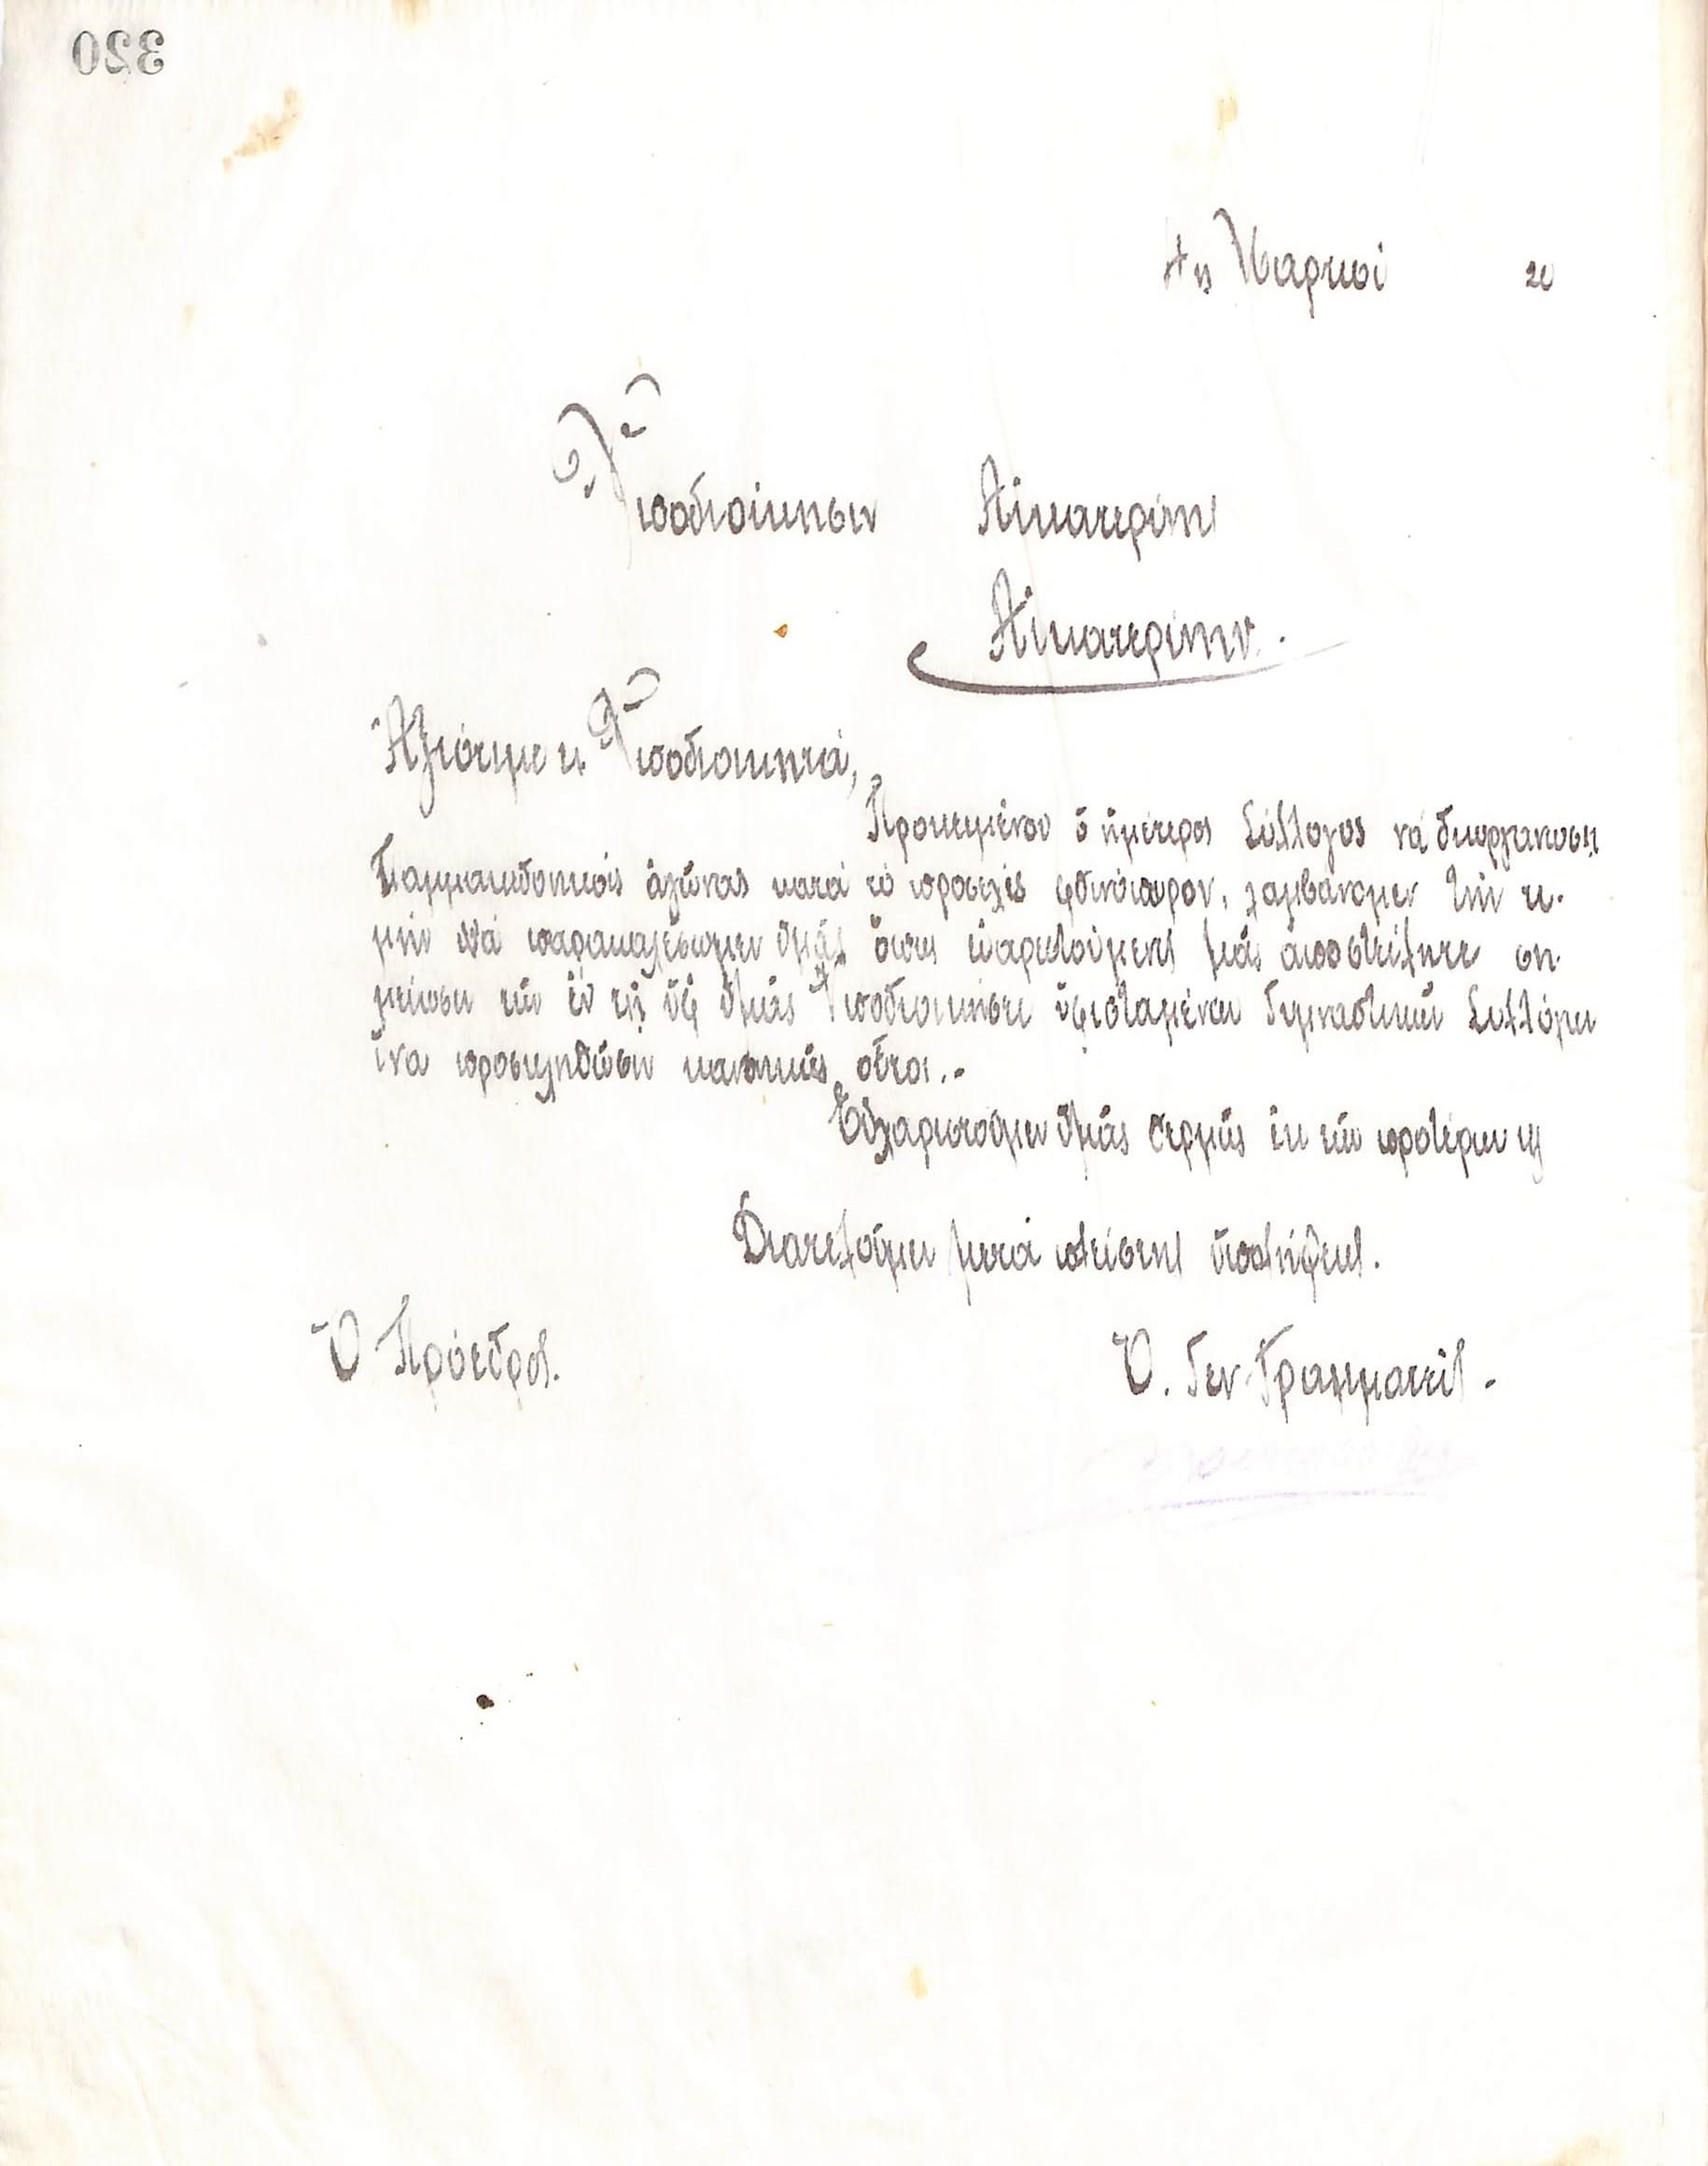 320
Μαρτίου 20
Ὑποδιοίκησιν Αἰκατερίνης
Αἰκατερίνην.
Ἀξιότιμε κ. Ὑποδιοικητά,
Προκειμένου ὁ ἡμέτερος Σύλλογος νά διοργανώσῃ
Παμμακεδονικούς ἀγῶνας κατά τό προσεχές φθινόπωρον, λαμβάνομεν τήν τι-
μήν νά παρακαλέσωμεν ὑμᾶς ὅπως εὐαρεστούμενος μᾶς ἀποστείλητε ση-
μείωσιν τῶν ἐν τῇ ὑφ' ὑμᾶς Ὑποδιοικήσει ὑφισταμένων Γυμναστικῶν Συλλόγων
ἵνα προσκληθῶσιν κανονικῶς οὗτοι.-
Εὐχαριστοῦμεν ὑμᾶς θερμῶς ἐκ τῶν προτέρων κ
Διατελοῦμεν μετά πλείστης ὑπολήψεως.
Ὁ Πρόεδρος.
Ὁ. Γεν. Γραμματεύς.-